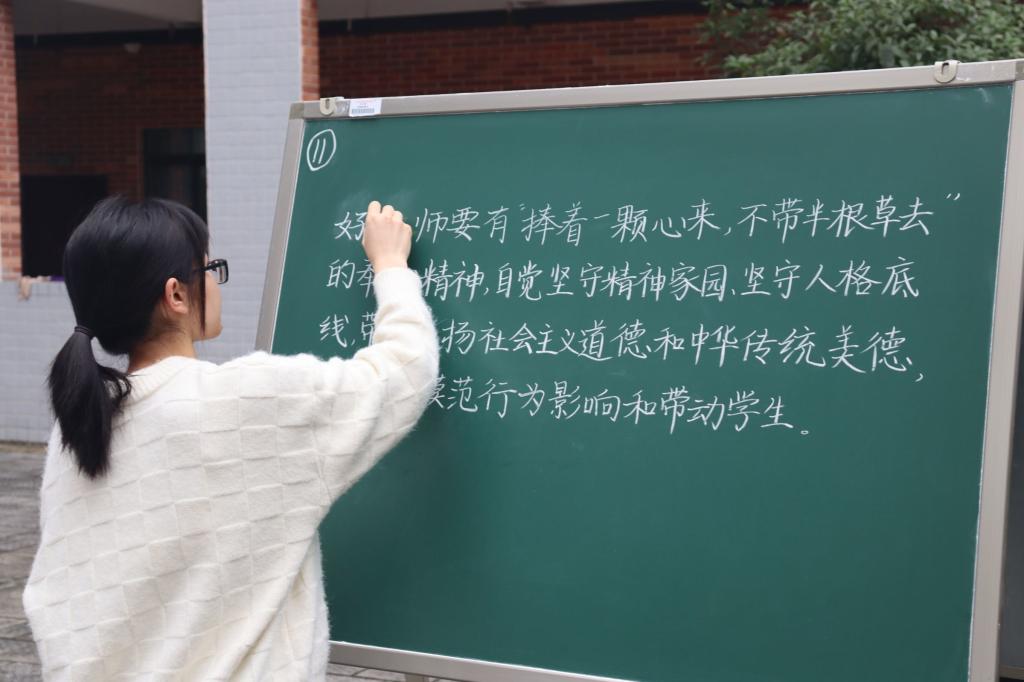 11
好 师要有"捧着一颗心来,不带半根草去"
的奉 精神,自觉坚守精神家园、坚守人格底
线,带 扬社会主义道德和中华传统美德,
模范行为影响和带动学生。